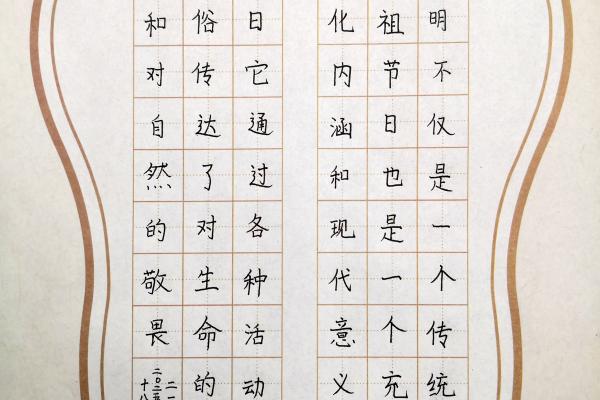 明不仅是一个传统
祖节日也是一个充
化内涵和现代意义
日它通过各种活动
俗传达了对生命的
和对自然的敬畏